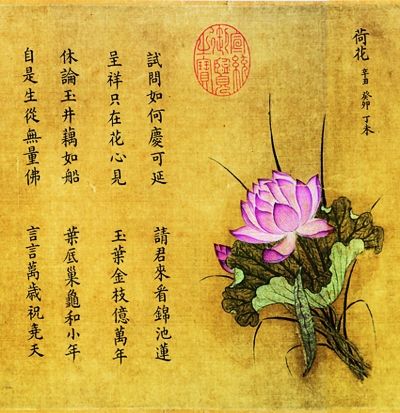 荷花 辛丑 癸卯 丁未
試問如何慶可延 請君來看錦池蓮
呈祥只在花心見 玉葉金枝億萬年
休論玉井藕如船 葉底巢龜和小年
自是生從無量佛 言言萬歲祝堯天
宣統御覽之寶